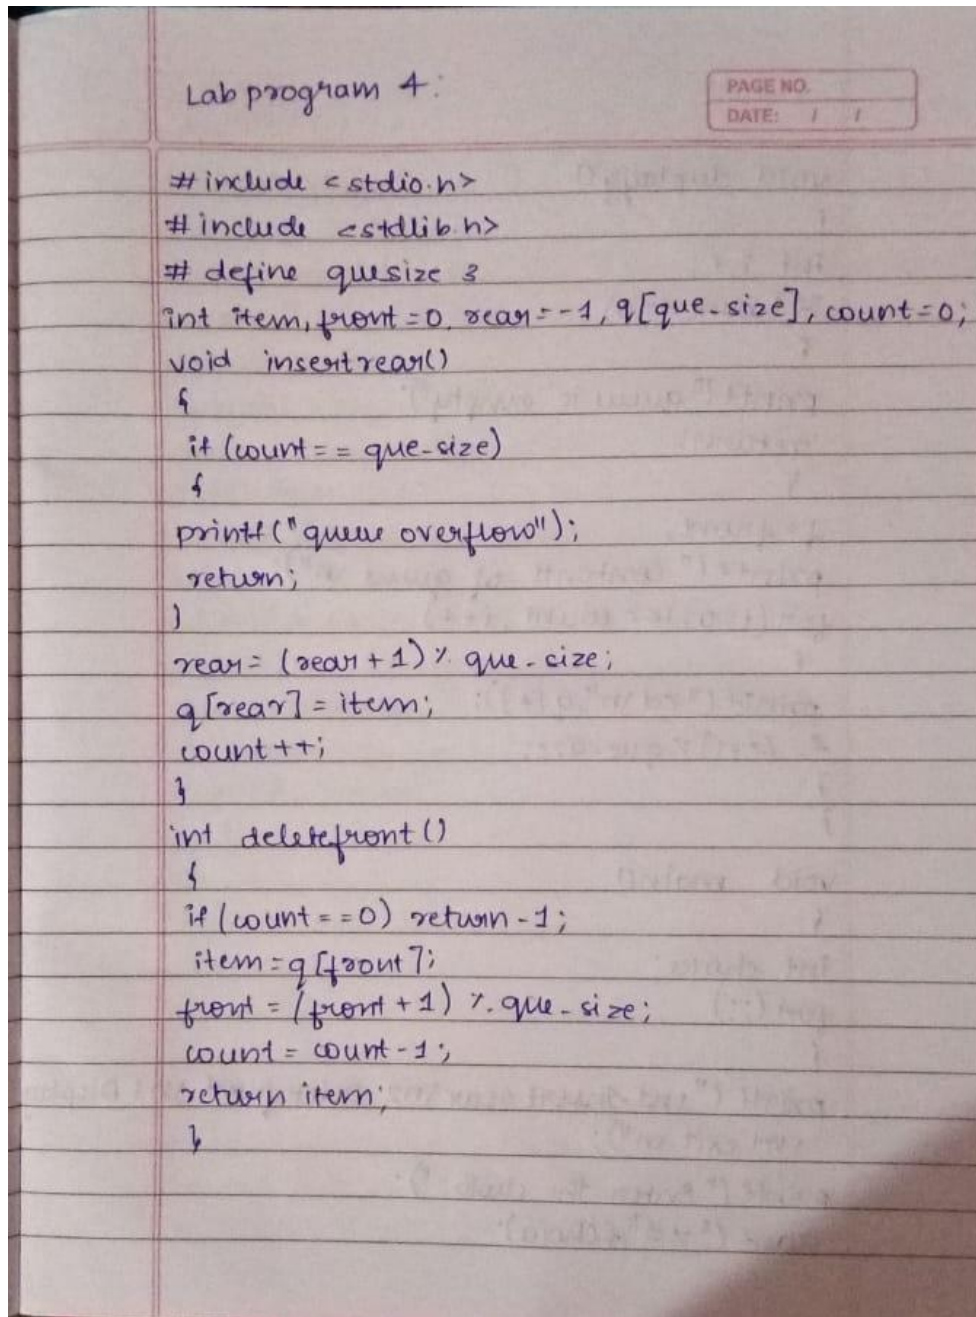 Lab program 4:
PAGE NO.
DATE: / /
#include <stdio.h>
#include <stdlib.h>
# define quesize 3
int item, front=0, rear=-1, q[que-size], count=0;
void insertrear()
{
if (count== que-size)
{
printf("queue overflow");
return;
}
rear= (rear+1)% que-size;
q[rear]=item;
count++;
}
int deletefront()
{
if (count==0) return-1;
item=q[front];
front = (front+1) % que-size;
count = count-1;
return item;
}